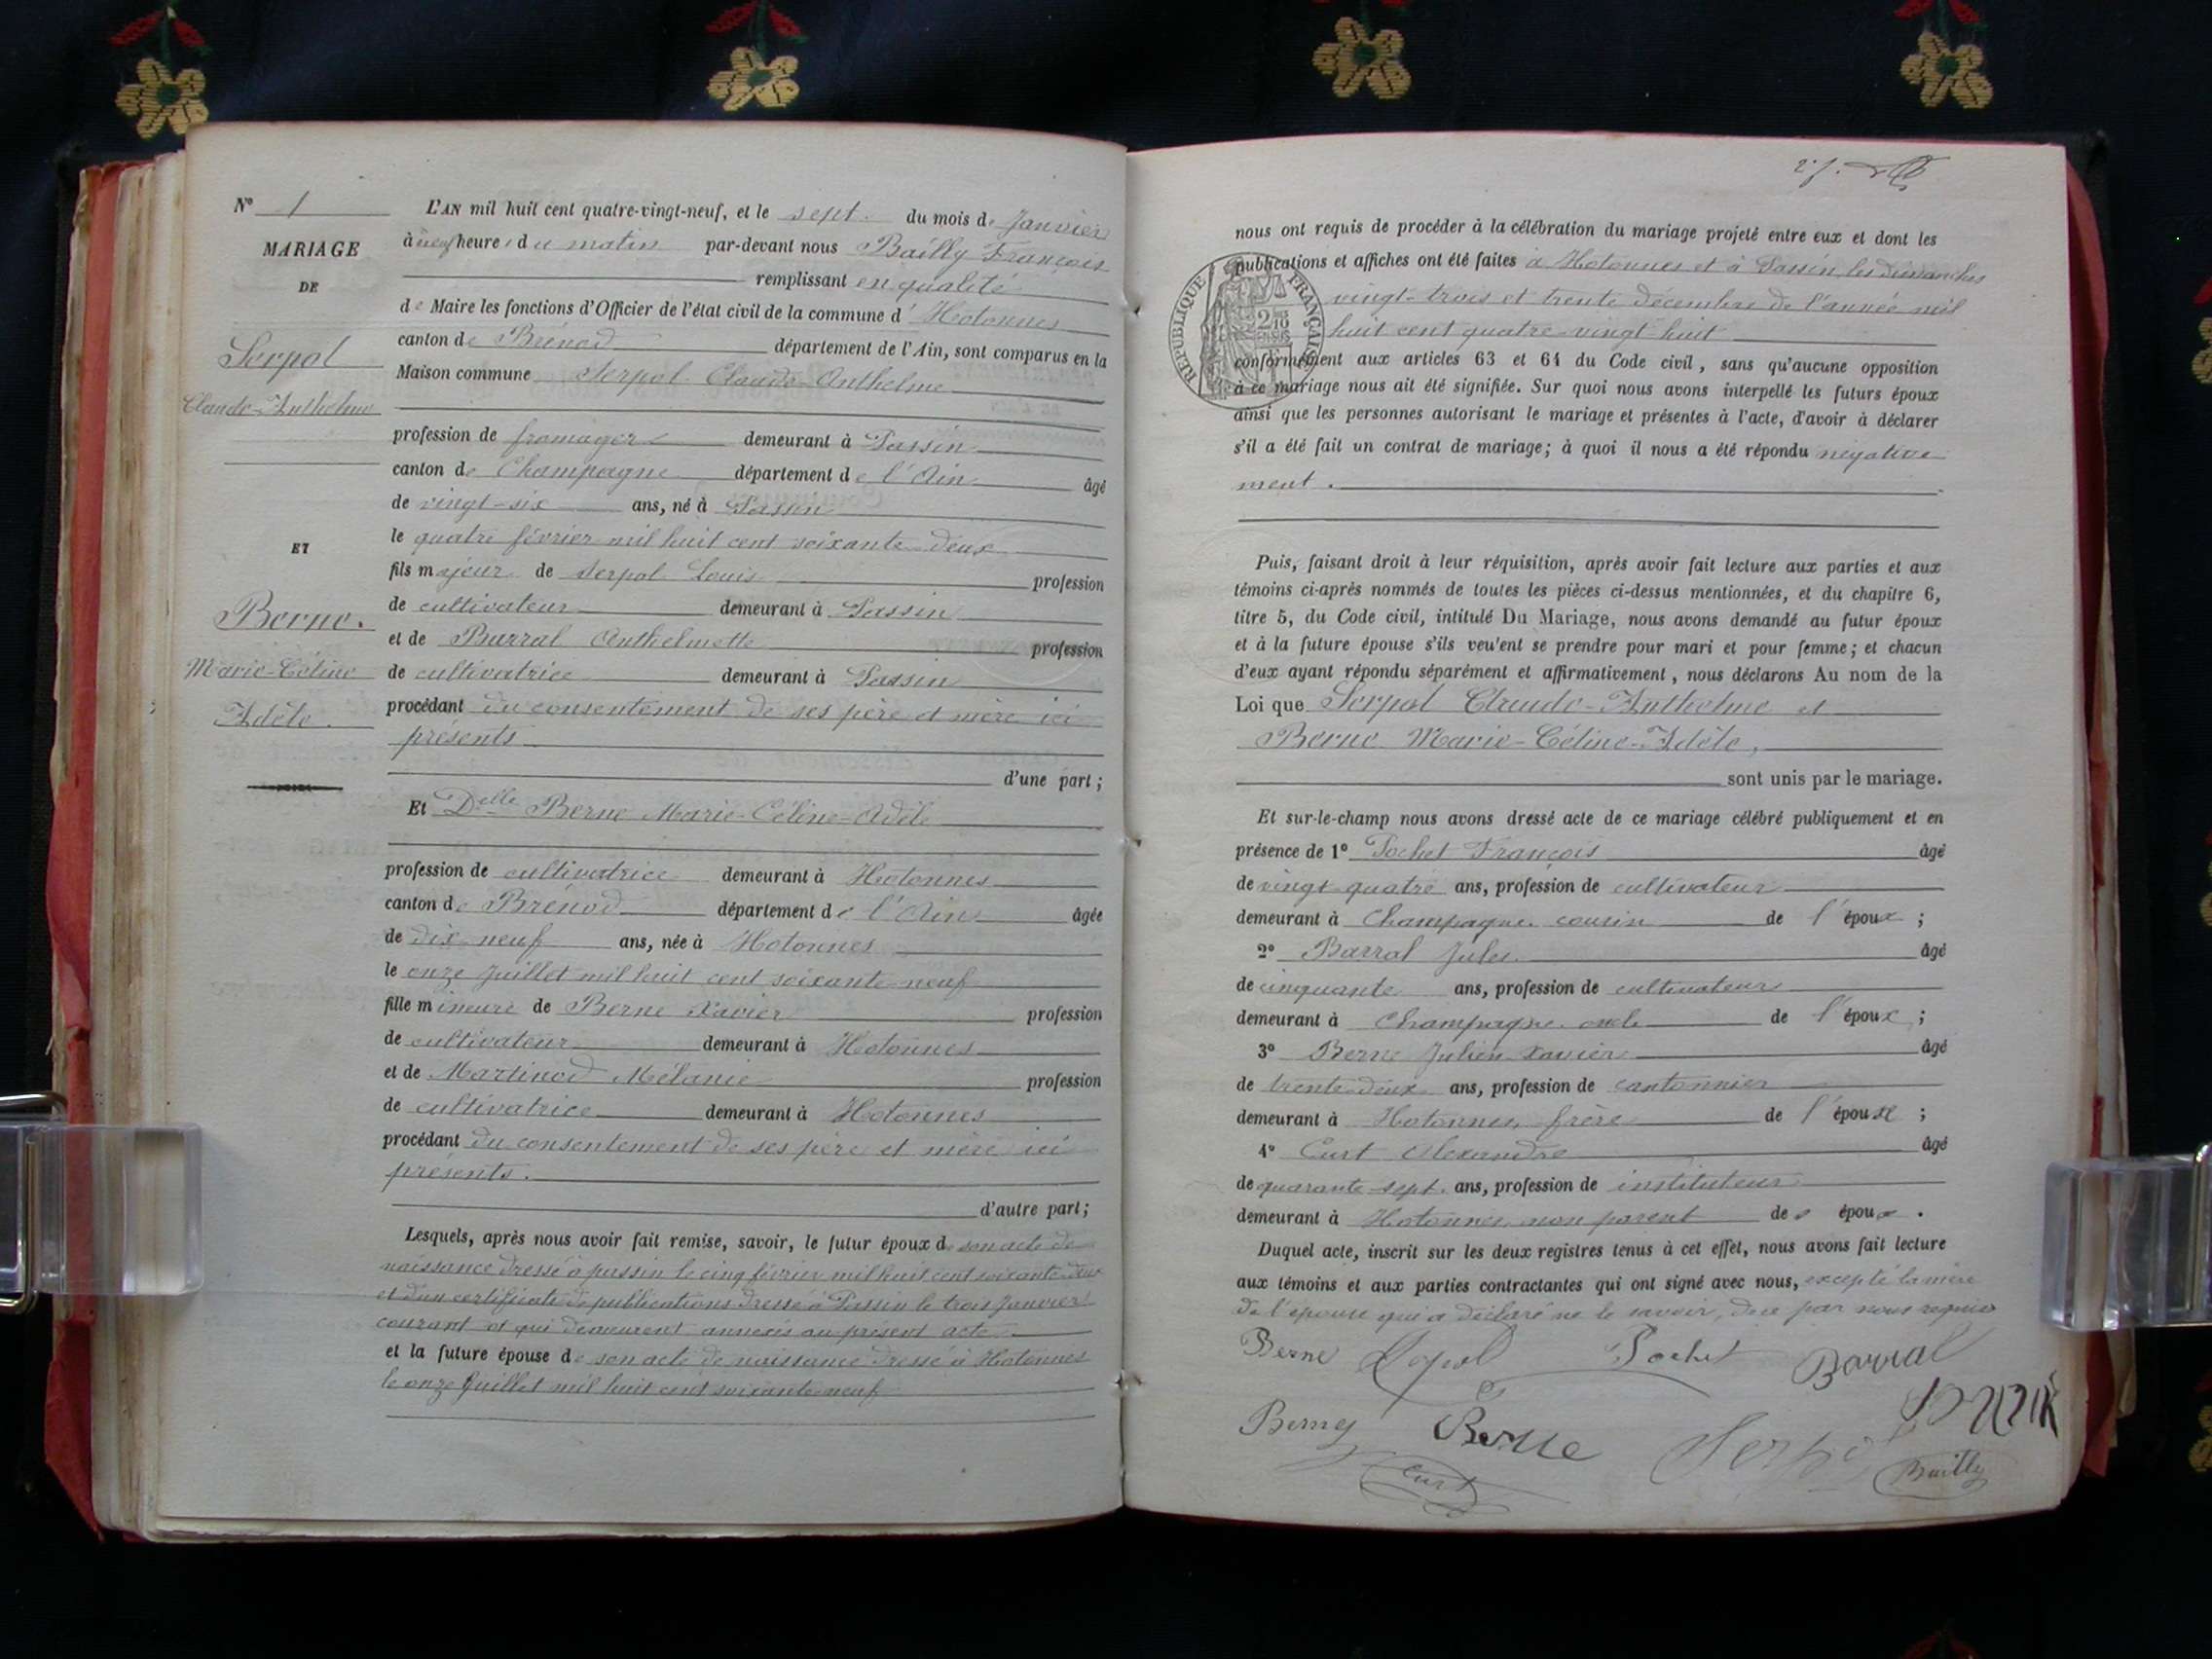 Nº 1
MARIAGE
DE
Serpol
Claude-Anthelme
ET
Berne.
Marie-Céline
Adèle.
L'AN mil huit cent quatre-vingt-neuf, et le sept du mois de Janvier
à neuf heures du matin par-devant nous Bailly François
remplissant en qualité
de Maire les fonctions d'Officier de l'état civil de la commune d' Hotonnes
canton de Brénod département de l'Ain, sont comparus en la
Maison commune Serpol Claude-Anthelme
profession de fromager demeurant à Passin
canton de Champagne département de l'Ain âgé
de vingt-six ans, né à Passin
le quatre février mil huit cent soixante-deux
fils majeur de Serpol Louis profession
de cultivateur demeurant à Passin
et de Barral Anthelmette profession
de cultivatrice demeurant à Passin
procédant du consentement de ses père et mère ici
présents
d'une part;
Et Delle Berne Marie-Céline-Adèle
profession de cultivatrice demeurant à Hotonnes
canton de Brénod département de l'Ain âgée
de dix-neuf ans, née à Hotonnes
le onze Juillet mil huit cent soixante-neuf
fille mineure de Berne Xavier profession
de cultivateur demeurant à Hotonnes
et de Martinod Mélanie profession
de cultivatrice demeurant à Hotonnes
procédant du consentement de ses père et mère ici
présents.
d'autre part;
Lesquels, après nous avoir fait remise, savoir, le futur époux de son acte de
naissance dressé à passin le cinq février mil huit cent soixante-deux
et d'un certificat de publications dressé à Passin le trois Janvier
courant et qui demeurent annexés au présent acte
et la future épouse de son acte de naissance dressé à Hotonnes
le onze Juillet mil huit cent soixante-neuf
nous ont requis de procéder à la célébration du mariage projeté entre eux et dont les
publications et affiches ont été faites à Hotonnes et à Passin les dimanches
vingt-trois et trente décembre de l'année mil
huit cent quatre-vingt-huit
RÉPUBLIQUE FRANÇAISE
conformément aux articles 63 et 64 du Code civil, sans qu'aucune opposition
à ce mariage nous ait été signifiée. Sur quoi nous avons interpellé les futurs époux
ainsi que les personnes autorisant le mariage et présentes à l'acte, d'avoir à déclarer
s'il a été fait un contrat de mariage; à quoi il nous a été répondu négative
ment.
Puis, faisant droit à leur réquisition, après avoir fait lecture aux parties et aux
témoins ci-après nommés de toutes les pièces ci-dessus mentionnées, et du chapitre 6,
titre 5, du Code civil, intitulé Du Mariage, nous avons demandé au futur époux
et à la future épouse s'ils veu'ent se prendre pour mari et pour femme; et chacun
d'eux ayant répondu séparément et affirmativement, nous déclarons Au nom de la
Loi que Serpol Claude-Anthelme et
Berne Marie-Céline-Adèle,
sont unis par le mariage.
Et sur-le-champ nous avons dressé acte de ce mariage célébré publiquement et en
présence de 1º Pochet François âgé
de vingt-quatre ans, profession de cultivateur
demeurant à Champagne cousin de l'époux;
2º Barral Jules âgé
de cinquante ans, profession de cultivateur
demeurant à Champagne oncle de l'époux;
3º Berne Julien Xavier âgé
de trente-deux ans, profession de cantonnier
demeurant à Hotonnes frère de l'épouse;
4º Curt Alexandre âgé
de quarante-sept ans, profession de instituteur
demeurant à Hotonnes, non parent des époux.
Duquel acte, inscrit sur les deux registres tenus à cet effet, nous avons fait lecture
aux témoins et aux parties contractantes qui ont signé avec nous, excepté la mère
de l'épouse qui a déclaré ne le savoir, de ce par nous requise
Berne Serpol Pochet Barral
Berne Berne Serpol
Curt Bailly